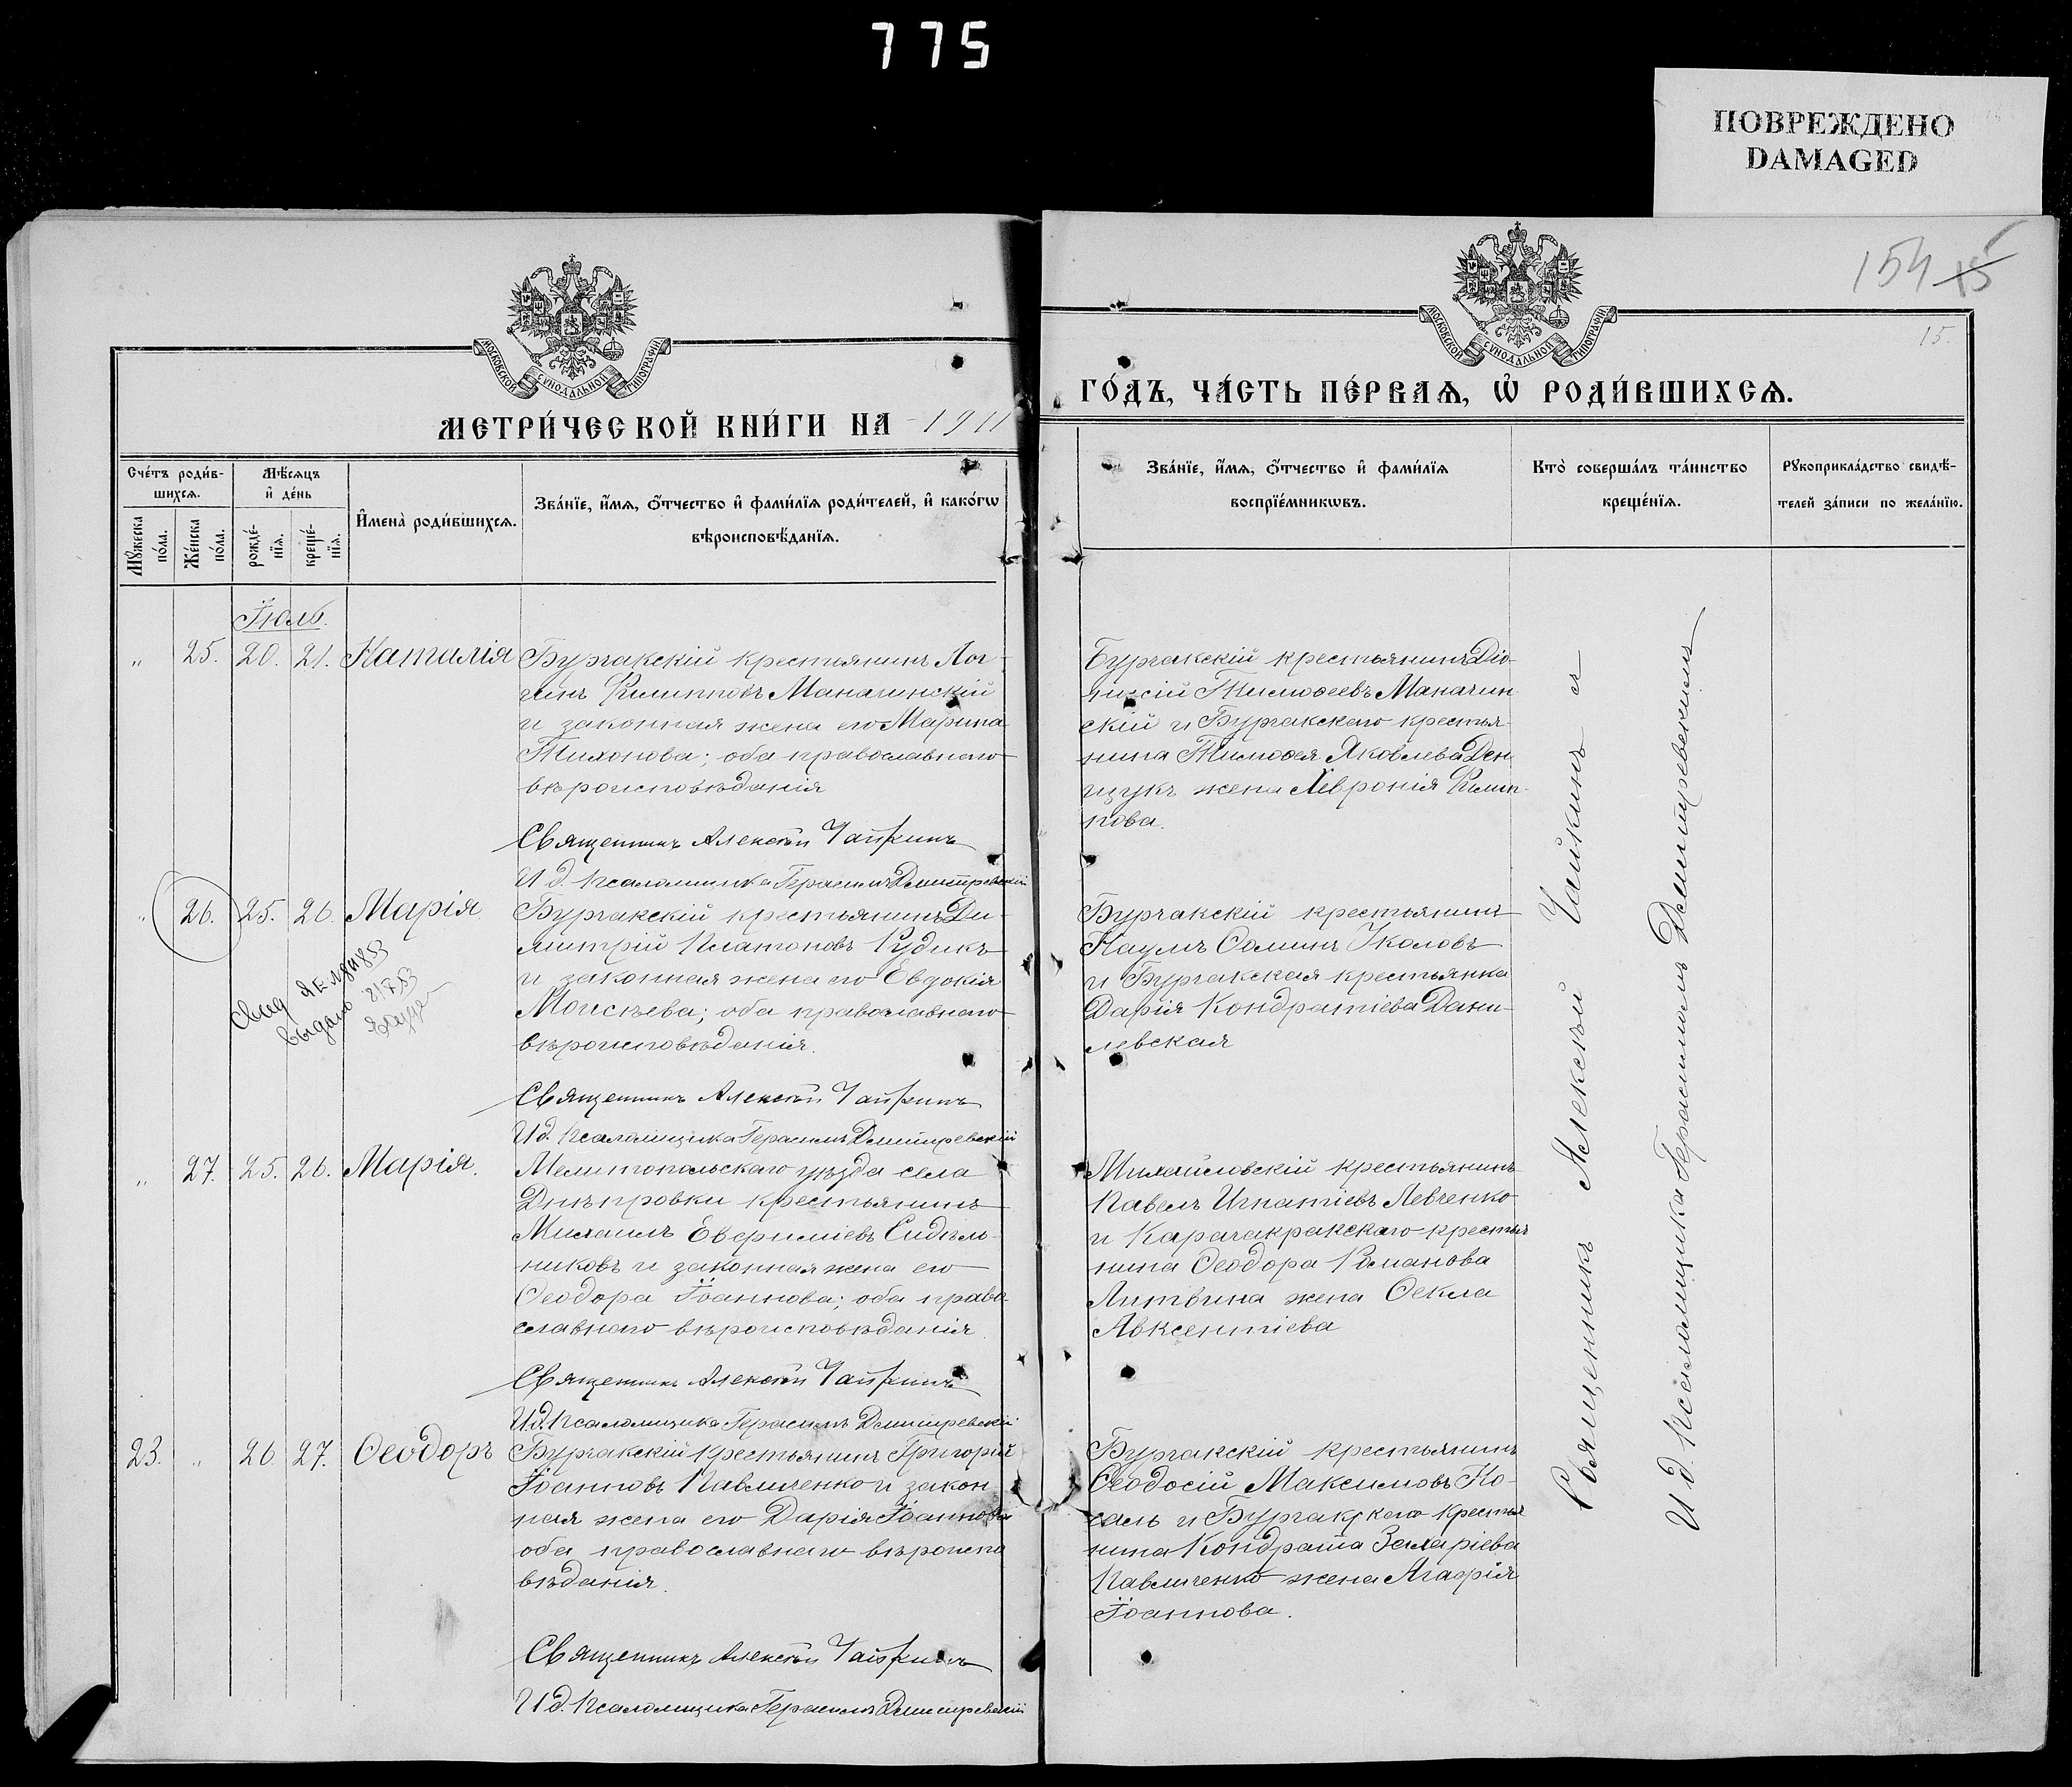 775
ПОВРЕЖДЕНО
DAMAGED
154 15
15.
МОСКОВСКОЙ СѴНОДАЛЬНОЙ ТИПОГРАФІИ
МОСКОВСКОЙ СѴНОДАЛЬНОЙ ТИПОГРАФІИ
МЕТРИ́ЧЕСКОЙ КНИ́ГИ НА 1911
ГО́ДЪ, ЧА́СТЬ ПЕ́РВАѦ, Ѡ҆ РОДИ́ВШИХСѦ.
Сче́тъ роди́в-
шихсѧ.
Мꙋ́жеска
по́ла.
Же́нска
по́ла.
Мѣ́сѧцъ
и҆ де́нь
рожде́-
нїѧ.
креще́-
нїѧ.
И҆мена̀ роди́вшихсѧ.
Зва́нїе, и҆́мѧ, ѻ҆́тчество и҆ фами́лїѧ роди́телей, и҆ како́гѡ
вѣроисповѣ́данїѧ.
Зва́нїе, и҆́мѧ, ѻ҆́тчество и҆ фами́лїѧ
воспрїе́мникѡвъ.
Кто̀ соверша́лъ та́инство
креще́нїѧ.
Рꙋкоприкла́дство свидѣ́-
телей за́писи по жела́нїю.
Іюль.
„ 25. 20. 21. Наталія
Бурчакскій крестьянинъ Лог-
гинъ Филипповъ Маначинскій
и законная жена его Марина
Тихонова; оба православнаго
вѣроисповѣданія
Священникъ Алексѣй Чайкинъ
И д. псаломщика Герасимъ Димитревскій
Бурчакскій крестьянинъ Діо-
нисій Тимоѳеевъ Маначин
скій и Бурчакскаго крестья-
нина Тимоѳея Яковлева Ден
щукъ жена Хевронія Филип-
пова.
„ 26. 25. 26. Марія.
Бурчакскій крестьянинъ Ди-
митрій Платоновъ Рудикъ
и законная жена его Евдокія
Моисѣева; оба православнаго
вѣроисповѣданія.
Священникъ Алексѣй Чайкинъ
И д. псаломщика Герасимъ Димитревскій
Свид
выдано 21 7 53
Бурчакскій крестьянинъ
Наумъ Ѳоминъ
и Бурчакская крестьянка
Дарія Кондратіева Дани-
левская
„ 27. 25. 26. Марія.
Мелитопольскаго уѣзда села
Днѣпровки крестьянинъ
Михаилъ Евфиміевъ Сидѣль-
никовъ и законная жена его
Ѳеодора Іоаннова; оба право-
славнаго вѣроисповѣданія.
Священникъ Алексѣй Чайкинъ
И д. псаломщика Герасимъ Димитревскій
Михайловскій крестьянинъ
Павелъ Игнатіевъ Левченко
и Карачакракскаго крестья
нина Ѳеодора Романова
Литвина жена Ѳекла
Авксентіева
23. „ 26 27. Ѳеодоръ
Бурчакскій крестьянинъ Григорій
Іоанновъ Павличенко и закон
ная жена его Дарія Іоаннова
оба православнаго вѣроиспо
вѣданія.
Священникъ Алексѣй Чайкинъ
И д. псаломщика Герасимъ Димитревскій
Бурчакскій крестьянинъ
Ѳеодосій Максимовъ Но-
саль и Бурчакскаго крестья
нина Кондрата Захаріева
Павличенко жена Агафія
Іоаннова.
Священникъ Алексѣй Чайкинъ
И д. псаломщика Герасимъ Димитревскій